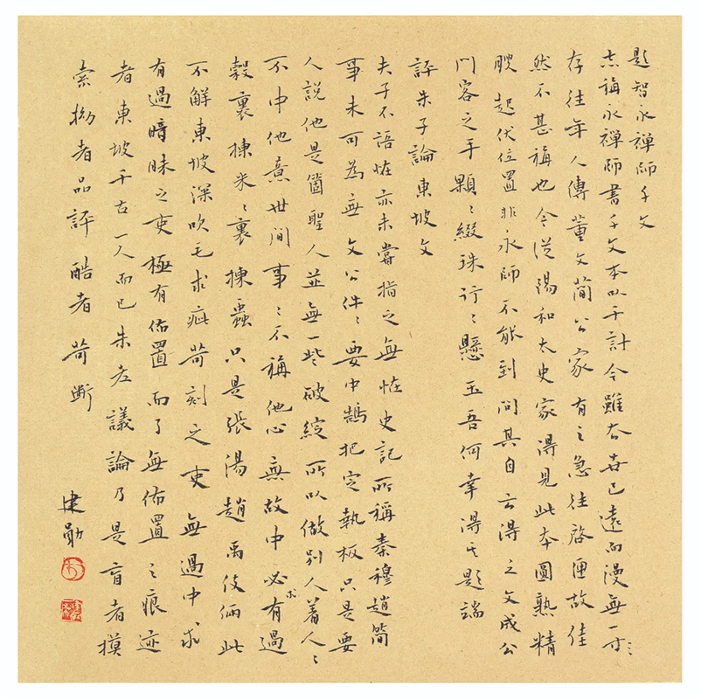 題智永禪師千文
志稱永禪師書千文本以千計今雖去世已遠而漫無一
存往年人傳董文簡公家有之急往啓匣故佳
然不甚稱也今從陽和太史家得見此本圓熟精
腴起伏位置非永師不能到問其自云得之文成公
門客之手顆〻綴珠行〻懸玉吾何幸得其題端
評朱子論東坡文
夫子不語怪亦未嘗指之無怪史記所稱秦穆趙簡
事未可為無文公件〻要中鵠把定執板只是要
人說他是箇聖人並無一些破綻所以做別人着人〻
不中他意世間事〻不稱他心無故中必求有過
穀裏揀米〻裏揀蟲只是張湯趙禹伎倆此
不解東坡深吹毛求疵苛刻之吏無過中求
有過暗昧之吏極有佈置而了無佈置之痕迹
者東坡千古一人而已朱老議論乃是盲者摸
索拗者品評酷者苛斷
建勛